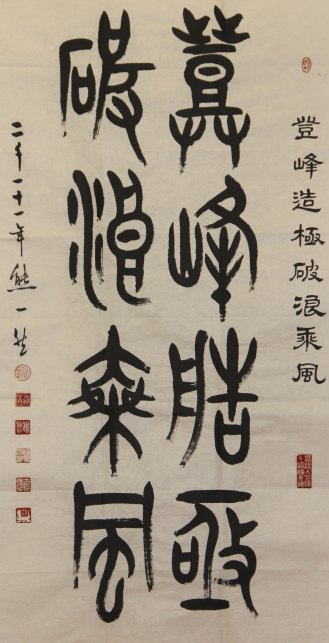 登峰造極破浪乘風
登峰造極
破浪乘風
二千二十一年熊一然